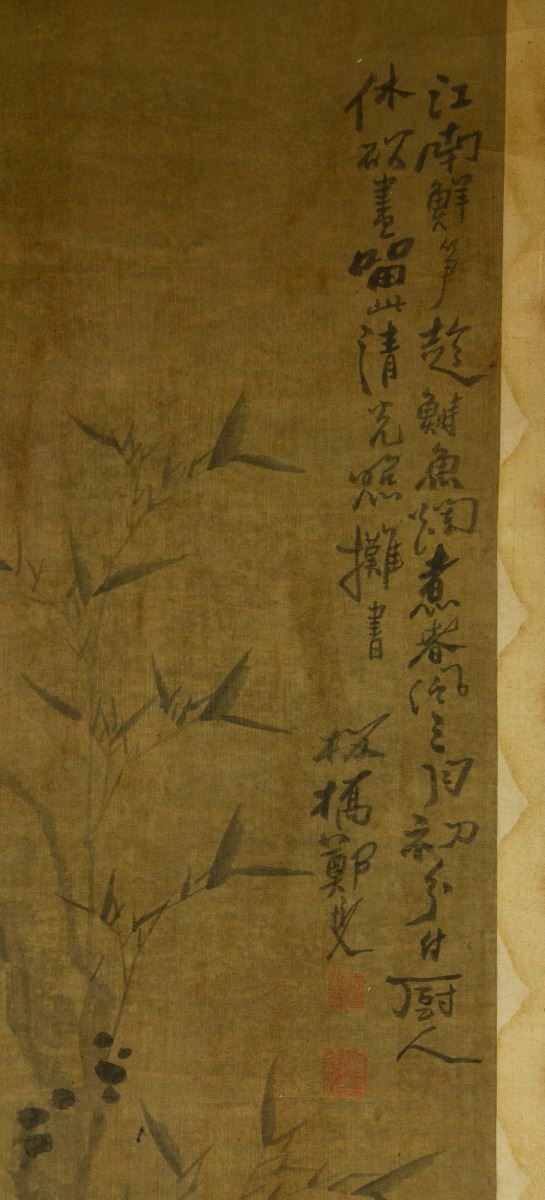 江南鮮笋趁鰣魚爛煮春風三月初分付厨人
休砍盡畱此清光照攤書
板橋鄭燮